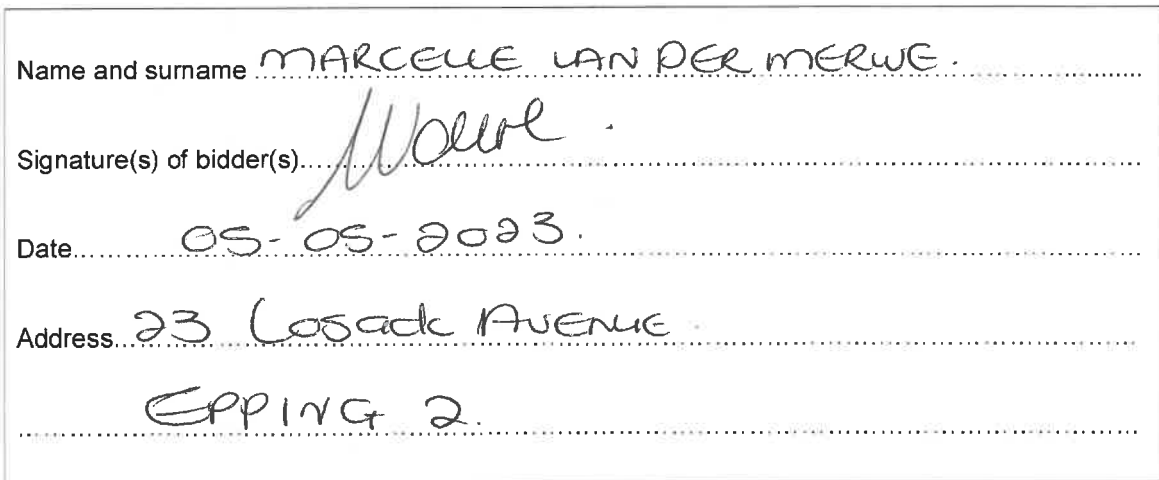 Name and surname MARCELLE VAN DER MERWE.
Signature(s) of bidder(s)
Date 05-05-2023.
Address 23 Losack AVENUE
EPPING 2.